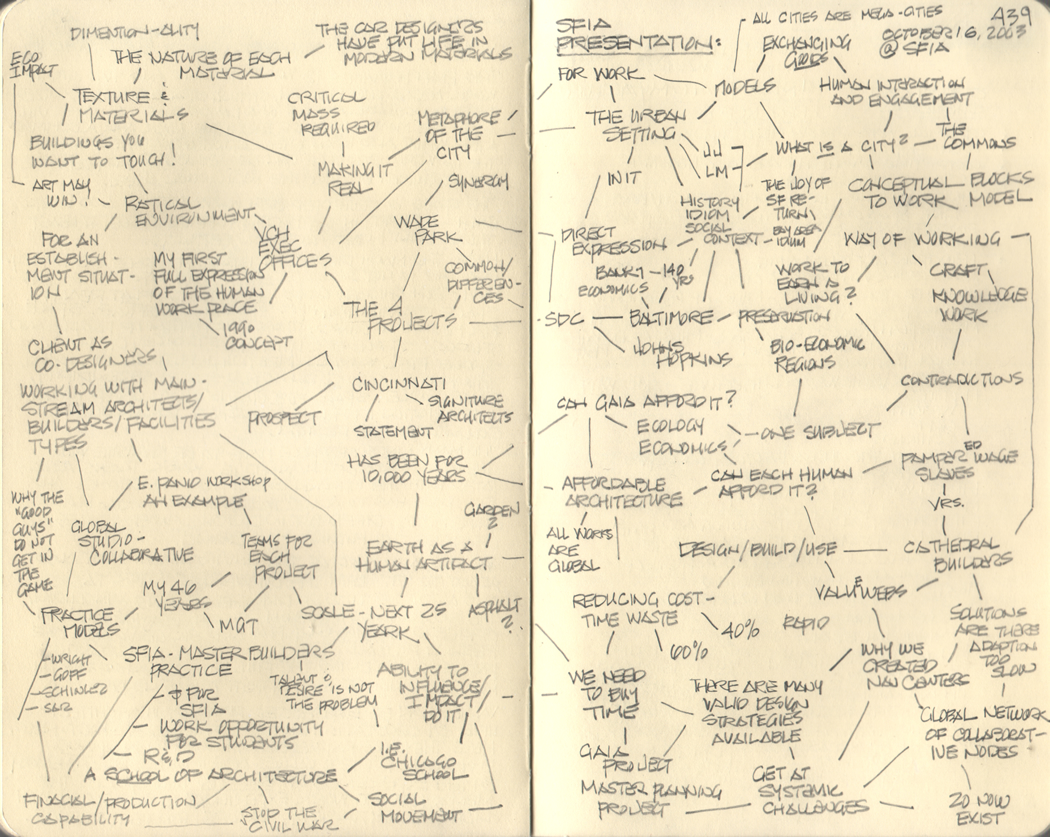 DIMENTION-ALITY
ECO
IMPACT
THE NATURE OF EACH
MATERIAL
THE CAR DESIGNERS
HAVE PUT LIFE IN
MODERN MATERIALS
TEXTURE &
MATERIALS
CRITICAL
MASS
REQUIRED
METAPHORE
OF THE
CITY
BUILDINGS YOU
WANT TO TOUCH!
MAKING IT
REAL
SYNERGY
ART MAY
WIN!
RATICAL
ENVIRONMENT
WADE
PARK
VCH
EXEC
OFFICES
FOR AN
ESTABLISH-
MENT SITUAT-
ION
MY FIRST
FULL EXPRESSION
OF THE HUMAN
WORK PLACE
COMMON/
DIFFEREN-
CES
THE 4
PROJECTS
1990
CONCEPT
CLIENT AS
CO-DESIGNERS
WORKING WITH MAIN-
STREAM ARCHITECTS/
BUILDERS/FACILITIES
TYPES
PROSPECT
CINCINNATI
SIGNITURE
ARCHITECTS
STATEMENT
HAS BEEN FOR
10,000 YEARS
WHY THE
"GOOD
GUYS"
DO NOT
GET IN
THE
GAME
E. PANIO WORKSHOP
AN EXAMPLE
GARDEN
?
GLOBAL
STUDIO-
COLLABORATIVE
TEAMS FOR
EACH
PROJECT
EARTH AS A
HUMAN ARTIFACT
MY 46
YEARS
PRACTICE
MODELS
MGT
SCALE - NEXT 25
YEARK
ASPHALT
?
- WRIGHT
- GOFF
- SCHINLER
- S&R
SFIA - MASTER BUILDERS
PRACTICE
TALENT &
DESIRE IS NOT
THE PROBLEM
ABILITY TO
INFLUENCE/
IMPACT/
DO IT
- $ FUR
SFIA
- WORK OPPORTUNITY
FOR STUDENTS
- R&D
A SCHOOL OF ARCHITECTURE
I.E.
CHICAGO
SCHOOL
FINACIAL/PRODUCTION
CAPABILITY
STOP THE
"CIVIL WAR"
SOCIAL
MOVEMENT
SFIA
PRESENTATION:
ALL CITIES ARE MEGA-CITIES
439
OCTOBER 16, 2003
@ SFIA
EXCHANGING
GOODS
FOR WORK
MODELS
HUMAN INTERACTION
AND ENGAGEMENT
THE URBAN
SETTING
JJ
LM
WHAT IS A CITY?
THE
COMMONS
IN IT
HISTORY
IDIOM
SOCIAL
CONTEXT
THE JOY OF
SF RE-
TURN
BAY AREA
IDIUM
CONCEPTUAL BLOCKS
TO WORK MODEL
DIRECT
EXPRESSION
WAY OF WORKING
BANK 1 - 140
YRS
ECONOMICS
WORK TO
EARN A
LIVING?
CRAFT
KNOWLEDGE
WORK
SDC
BALTIMORE
PRESERVATION
JOHNS
HOPKINS
BIO-ECONOMIC
REGIONS
CONTRADICTIONS
CAN GAIA AFFORD IT?
ECOLOGY
ECONOMICS
ONE SUBJECT
PAMPERED WAGE
SLAVES
VRS.
AFFORDABLE
ARCHITECTURE
CAN EACH HUMAN
AFFORD IT?
ALL WORKS
ARE
GLOBAL
DESIGN/BUILD/USE
CATHEDRAL
BUILDERS
VALUEWEBS
REDUCING COST-
TIME WASTE
40%
RAPID
60%
SOLUTIONS
ARE THERE
ADAPTION
TOO
SLOW
WE NEED
TO BUY
TIME
WHY WE
CREATED
NAV CENTERS
THERE ARE MANY
VALID DESIGN
STRATEGIES
AVAILABLE
GLOBAL NETWORK
OF COLLABORAT-
IVE NODES
GAIA
PROJECT
MASTER PLANNING
PROJECT
GET AT
SYSTEMIC
CHALLENGES
20 NOW
EXIST